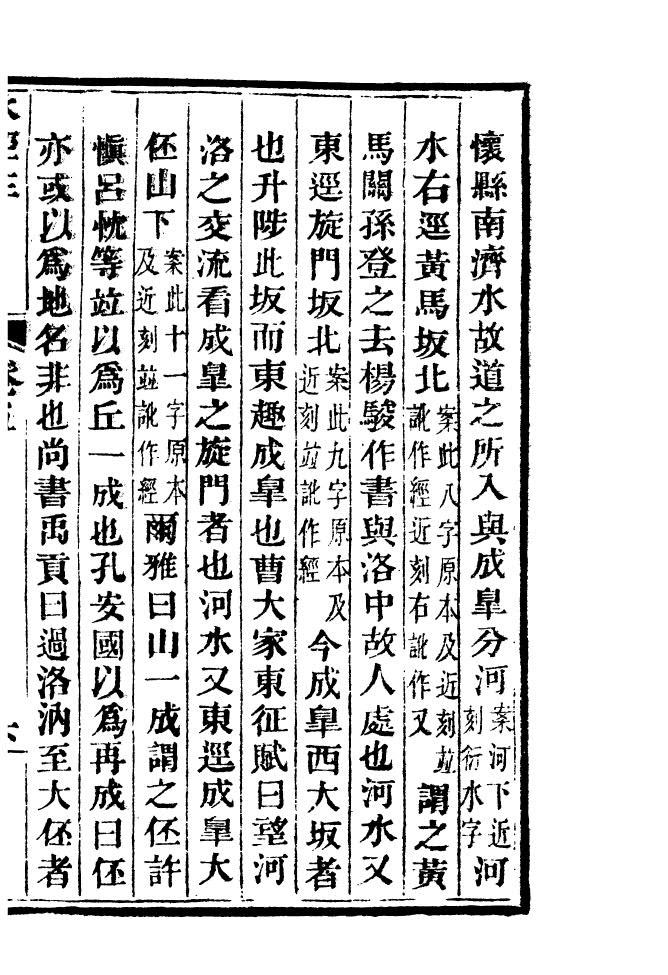 懷縣南濟水故道之所入與成臯分河案河下近刻衍水字河
水右逕黃馬坂北案此八字原本及近刻竝訛作經近刻右訛作又謂之黃
馬關孫登之去楊駿作書與洛中故人處也河水又
東逕旋門坂北案此九字原本及近刻竝訛作經今成臯西大坂者
也升陟此坂而東趣成臯也曹大家東征賦曰望河
洛之交流看成臯之旋門者也河水又東逕成臯大
伾山下案此十一字原本及近刻竝訛作經爾雅曰山一成謂之伾許
愼呂忱等竝以爲丘一成也孔安國以爲再成曰伾
亦或以爲地名非也尚書禹貢曰過洛汭至大伾者